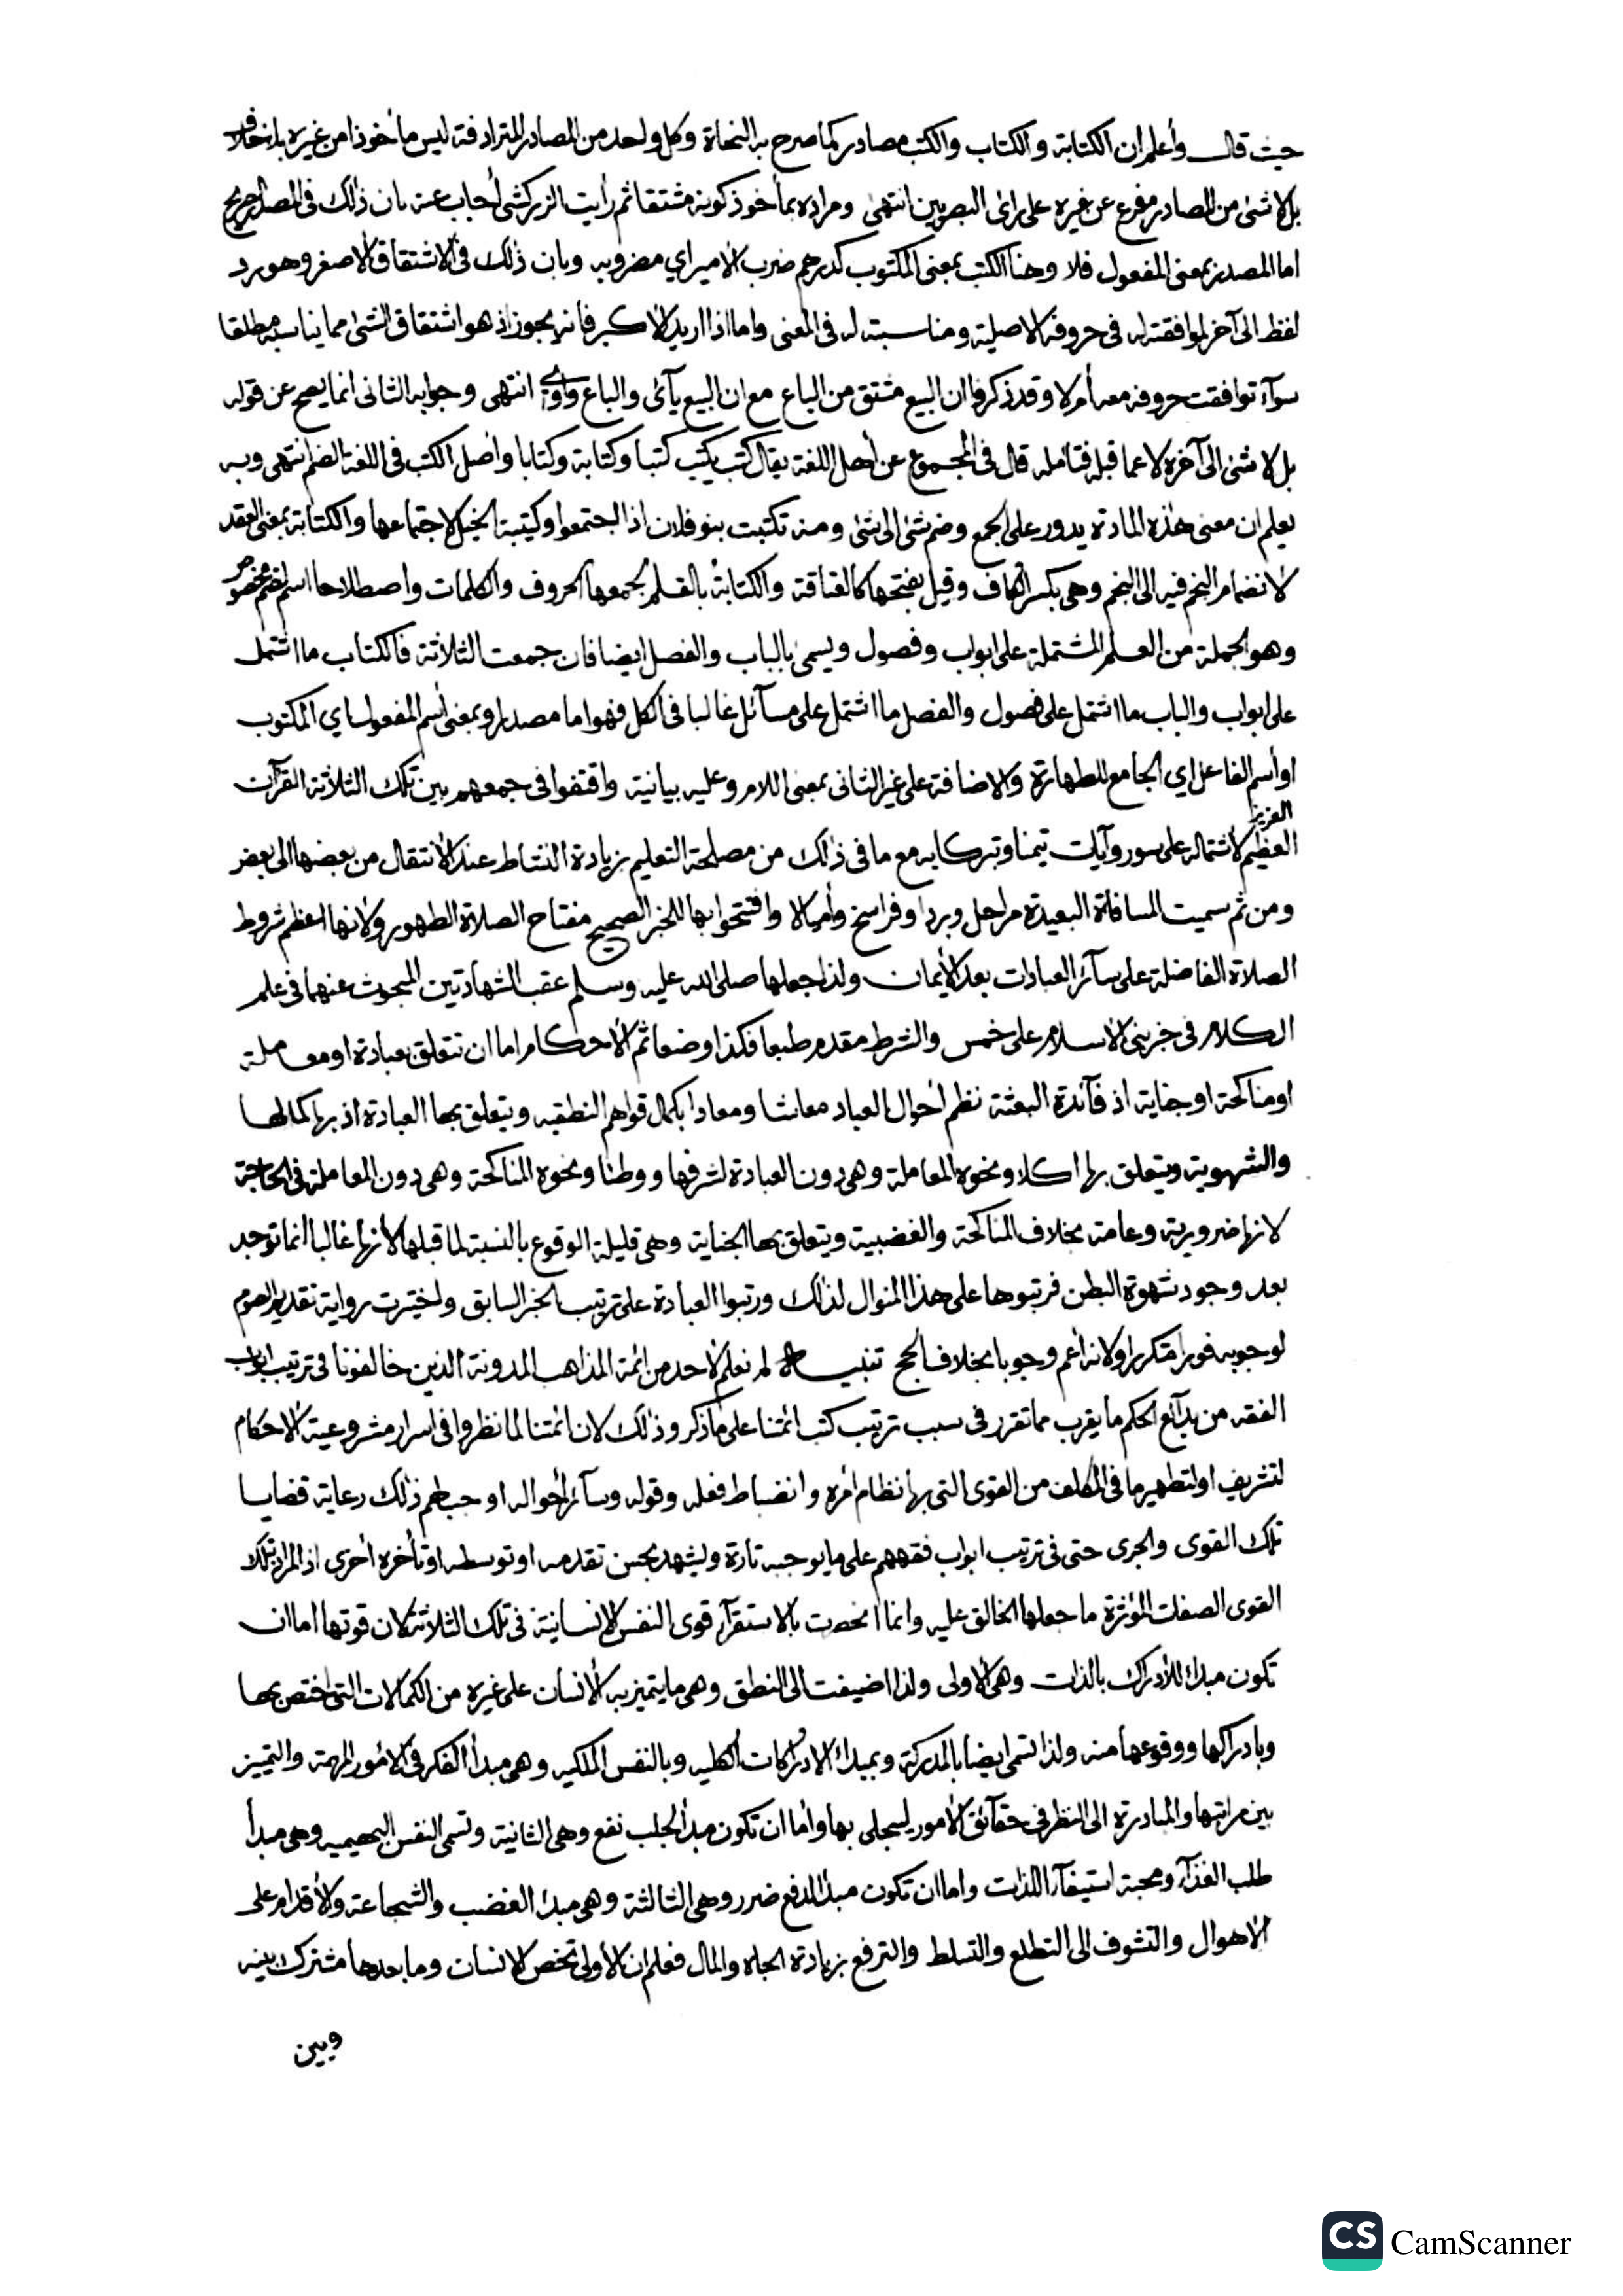 حيث قال وأعلم ان الكتابة والكتاب والكتب مصادر كما صرح به النحاة وكل واحد من المصادر المترادفة ليس مأخوذا من غيره بلا خلاف
بل لا شئ من المصادر مفرع عن غيره على رأى البصريين انتهى ومراده بمأخوذ كونه مشتقا ثم رأيت الزركشى أجاب عنه بان ذلك فى المصدر الصريح
اما المصدر بمعنى المفعول فلا وهنا الكتب بمعنى المكتوب كدرهم ضرب الامير اي مضروبه وبان ذلك فى الاشتقاق الاصغر وهو رد
لفظ الى آخر لموافقته له فى حروفه الاصلية ومناسبته له فى المعنى واما اذا اريد الأكبر فانه يجوز اذ هو اشتقاق الشئ مما يناسبه مطلقا
سوآء توافقت حروفه معه أم لا وقد ذكروا ان البيع مشتق من الباع مع ان البيع يآئى والباع واوي انتهى وجوابه الثانى انما يصح عن قوله
بل لا شئ الى آخره لا عما قبله فتأمله قال فى المجموع عن أهل اللغة يقال كتب يكتب كتبا وكتابة وكتابا وأصل الكتب فى اللغة الضم انتهى وبه
يعلم ان معنى هذه المادة يدور على الجمع وضم شئ الى شئ ومنه تكتبت بنو فلان اذا اجتمعوا وكتيبة الخيل لاجتماعها والكتابة بمعنى العقد
لانضمام النجم فيه الى النجم وهى بكسر الكاف وقيل بفتحها كالعتاقة والكتابة بالقلم لجمعها الحروف والكلمات واصطلاحا اسم لضم مخصوص
وهو الجملة من العلم المشتملة على ابواب وفصول ويسمى بالباب والفصل ايضا فان جمعت الثلاثة فالكتاب ما اشتمل
على ابواب والباب ما اشتمل على فصول والفصل ما اشتمل على مسآئل غالبا فى الكل فهو اما مصدر او بمعنى أسم المفعول اي المكتوب
او أسم الفاعل اي الجامع للطهارة والاضافة على غير الثانى بمعنى اللام وعليه بيانية واقتفوا فى جمعهم بين تلك الثلاثة القرآن
العزيز
العظيم لاشتماله على سور وآيات تيمنا وتبركا به مع ما فى ذلك من مصلحة التعليم بزيادة النشاط عند الأنتقال من بعضها الى بعض
ومن ثم سميت المسافة البعيدة مراحل وبردا وفراسخ وأميالا وافتتحوا بها للخبر الصحيح مفتاح الصلاة الطهور ولانها اعظم شروط
الصلاة الفاضلة على سآئر العبادات بعد الأيمان ولذا جعلها صلى الله عليه وسلم عقب الشهادتين المبحوث عنهما فى علم
الكلام فى خبر بنى الأسلام على خمس والشرط مقدم طبعا فكذا وضعا ثم الأحكام اما ان تتعلق بعبادة او معاملة
او مناكحة او جناية اذ فآئدة البعثة نظم أحوال العباد معاشا ومعادا بكمال قواهم النطقيه ويتعلق بها العبادة اذ بها كمالها
والشهوية ويتعلق بها اكلا ونحوه المعاملة وهى دون العبادة لشرفها ووطئا ونحوه المناكحة وهى دون المعاملة فى الحاجة
لانها ضرورية وعامة بخلاف المناكحة والغضبية ويتعلق بها الجناية وهى قليلة الوقوع بالنسبة لما قبلها لأنها غالبا انما توجد
بعد وجود شهوة البطن فرتبوها على هذا المنوال لذلك ورتبوا العبادة على ترتيب الخبر السابق واختيرت رواية تقديم الصوم
لوجوبه فورا متكررا ولانه أعم وجوبا بخلاف الحج تنبيه لم نعلم لأحد من ائمة المذاهب المدونة الذين خالفونا فى ترتيب ابواب
الفقه من بدآئع الحكم ما يقرب مما تقرر فى سبب ترتيب كتب ائمتنا على ما ذكر وذلك لان ائمتنا لما نظروا فى اسرار مشروعية الاحكام
لتشريف او لتطهير ما فى المكلف من القوى التى بها نظام أمره وانضباط فعله وقوله وسآئر أحواله اوجب لهم ذلك رعاية قضايا
تلك القوى والجرى حتى فى ترتيب ابواب فقههم على ما يوجبه تارة ويشهد بحسن تقدمه او توسطه او تأخره أخرى اذ المراد بتلك
القوى الصفات المؤثرة ما جعلها الخالق عليه وانما انحصرت بالاستقرآء قوى النفس الانسانية فى تلك الثلاثة لان قوتها اما ان
تكون مبدأ للأدراك بالذات وهى الأولى ولذا اضيفت الى النطق وهى ما يتميز به الأنسان على غيره من الكمالات التى اختص بها
وبادراكها ووقوعها منه ولذا تسمى ايضا بالمدركة وبمبدأ الادراكات الكليه وبالنفس الملكيه وهى مبدأ الفكر فى الامور المهمة والتمييز
بين مراتبها والمبادرة الى النظر فى حقآئق الأمور ليتحلى بها وأما ان تكون مبدأ لجلب نفع وهى الثانية وتسمى النفس البهيميه وهى مبدأ
طلب الغذآء ومحبة استيفآء اللذات واما ان تكون مبدأ لدفع ضرر وهى الثالثة وهى مبدأ الغضب والشجاعة والأقدام على
الاهوال والتشوف الى التطلع والتسلط والترفع بزيادة الجاه والمال فعلم ان الأولى تخص الانسان وما بعدها مشترك بينه
وبين
CS CamScanner